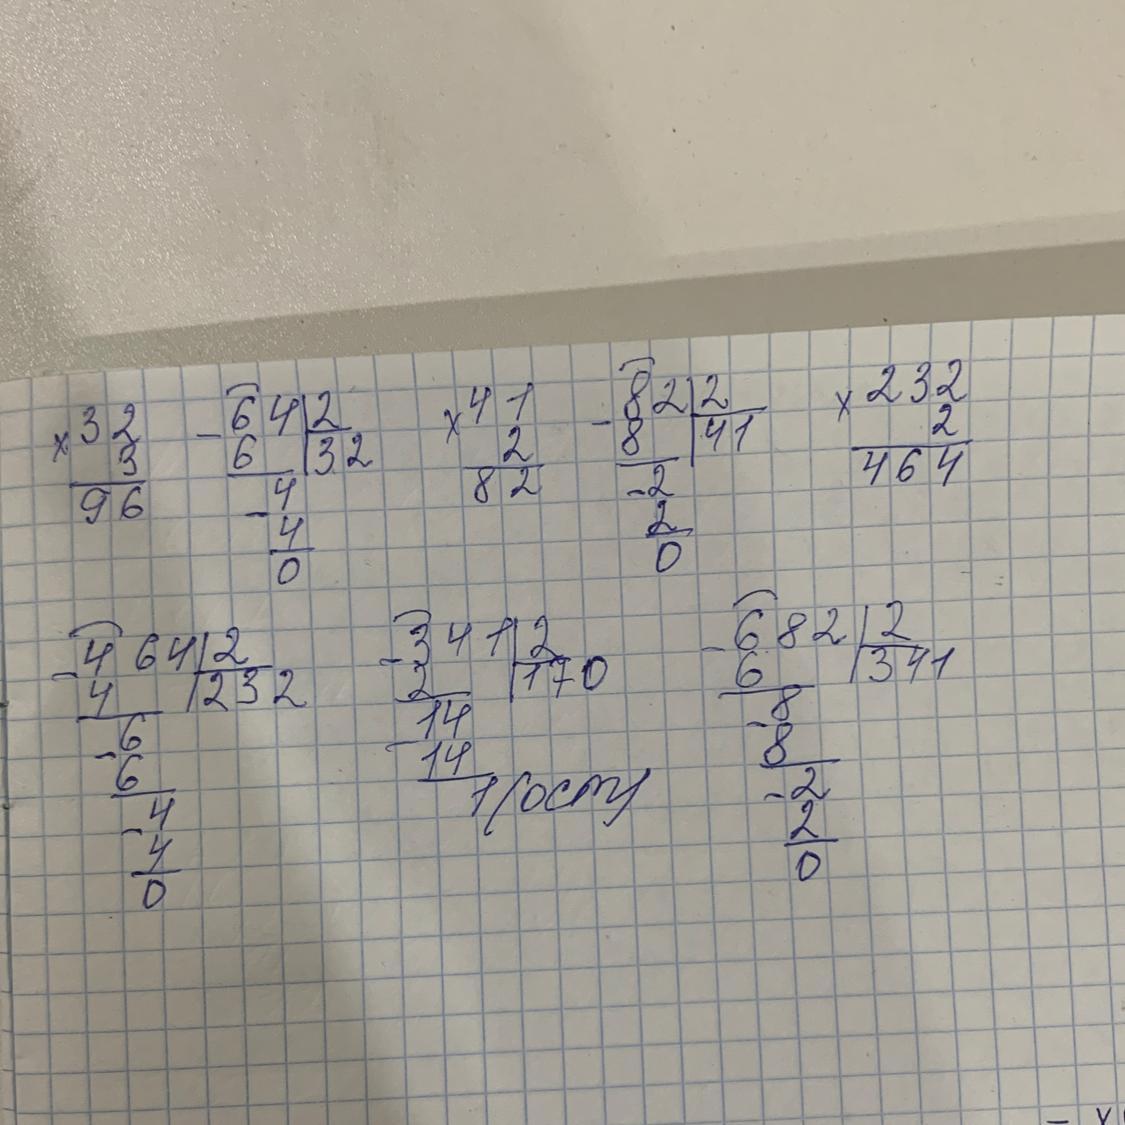 ×32 -64|2 ×41 -82|2 ×232
3 6 |32 2 8 |41 2
96 -4 82 -2 464
4 2
0 0
-464|2 -341|2 -682|2
4 |232 2 |170 6 |341
-6 -14 -8
6 14 8
-4 1(ост) -2
4 2
0 0